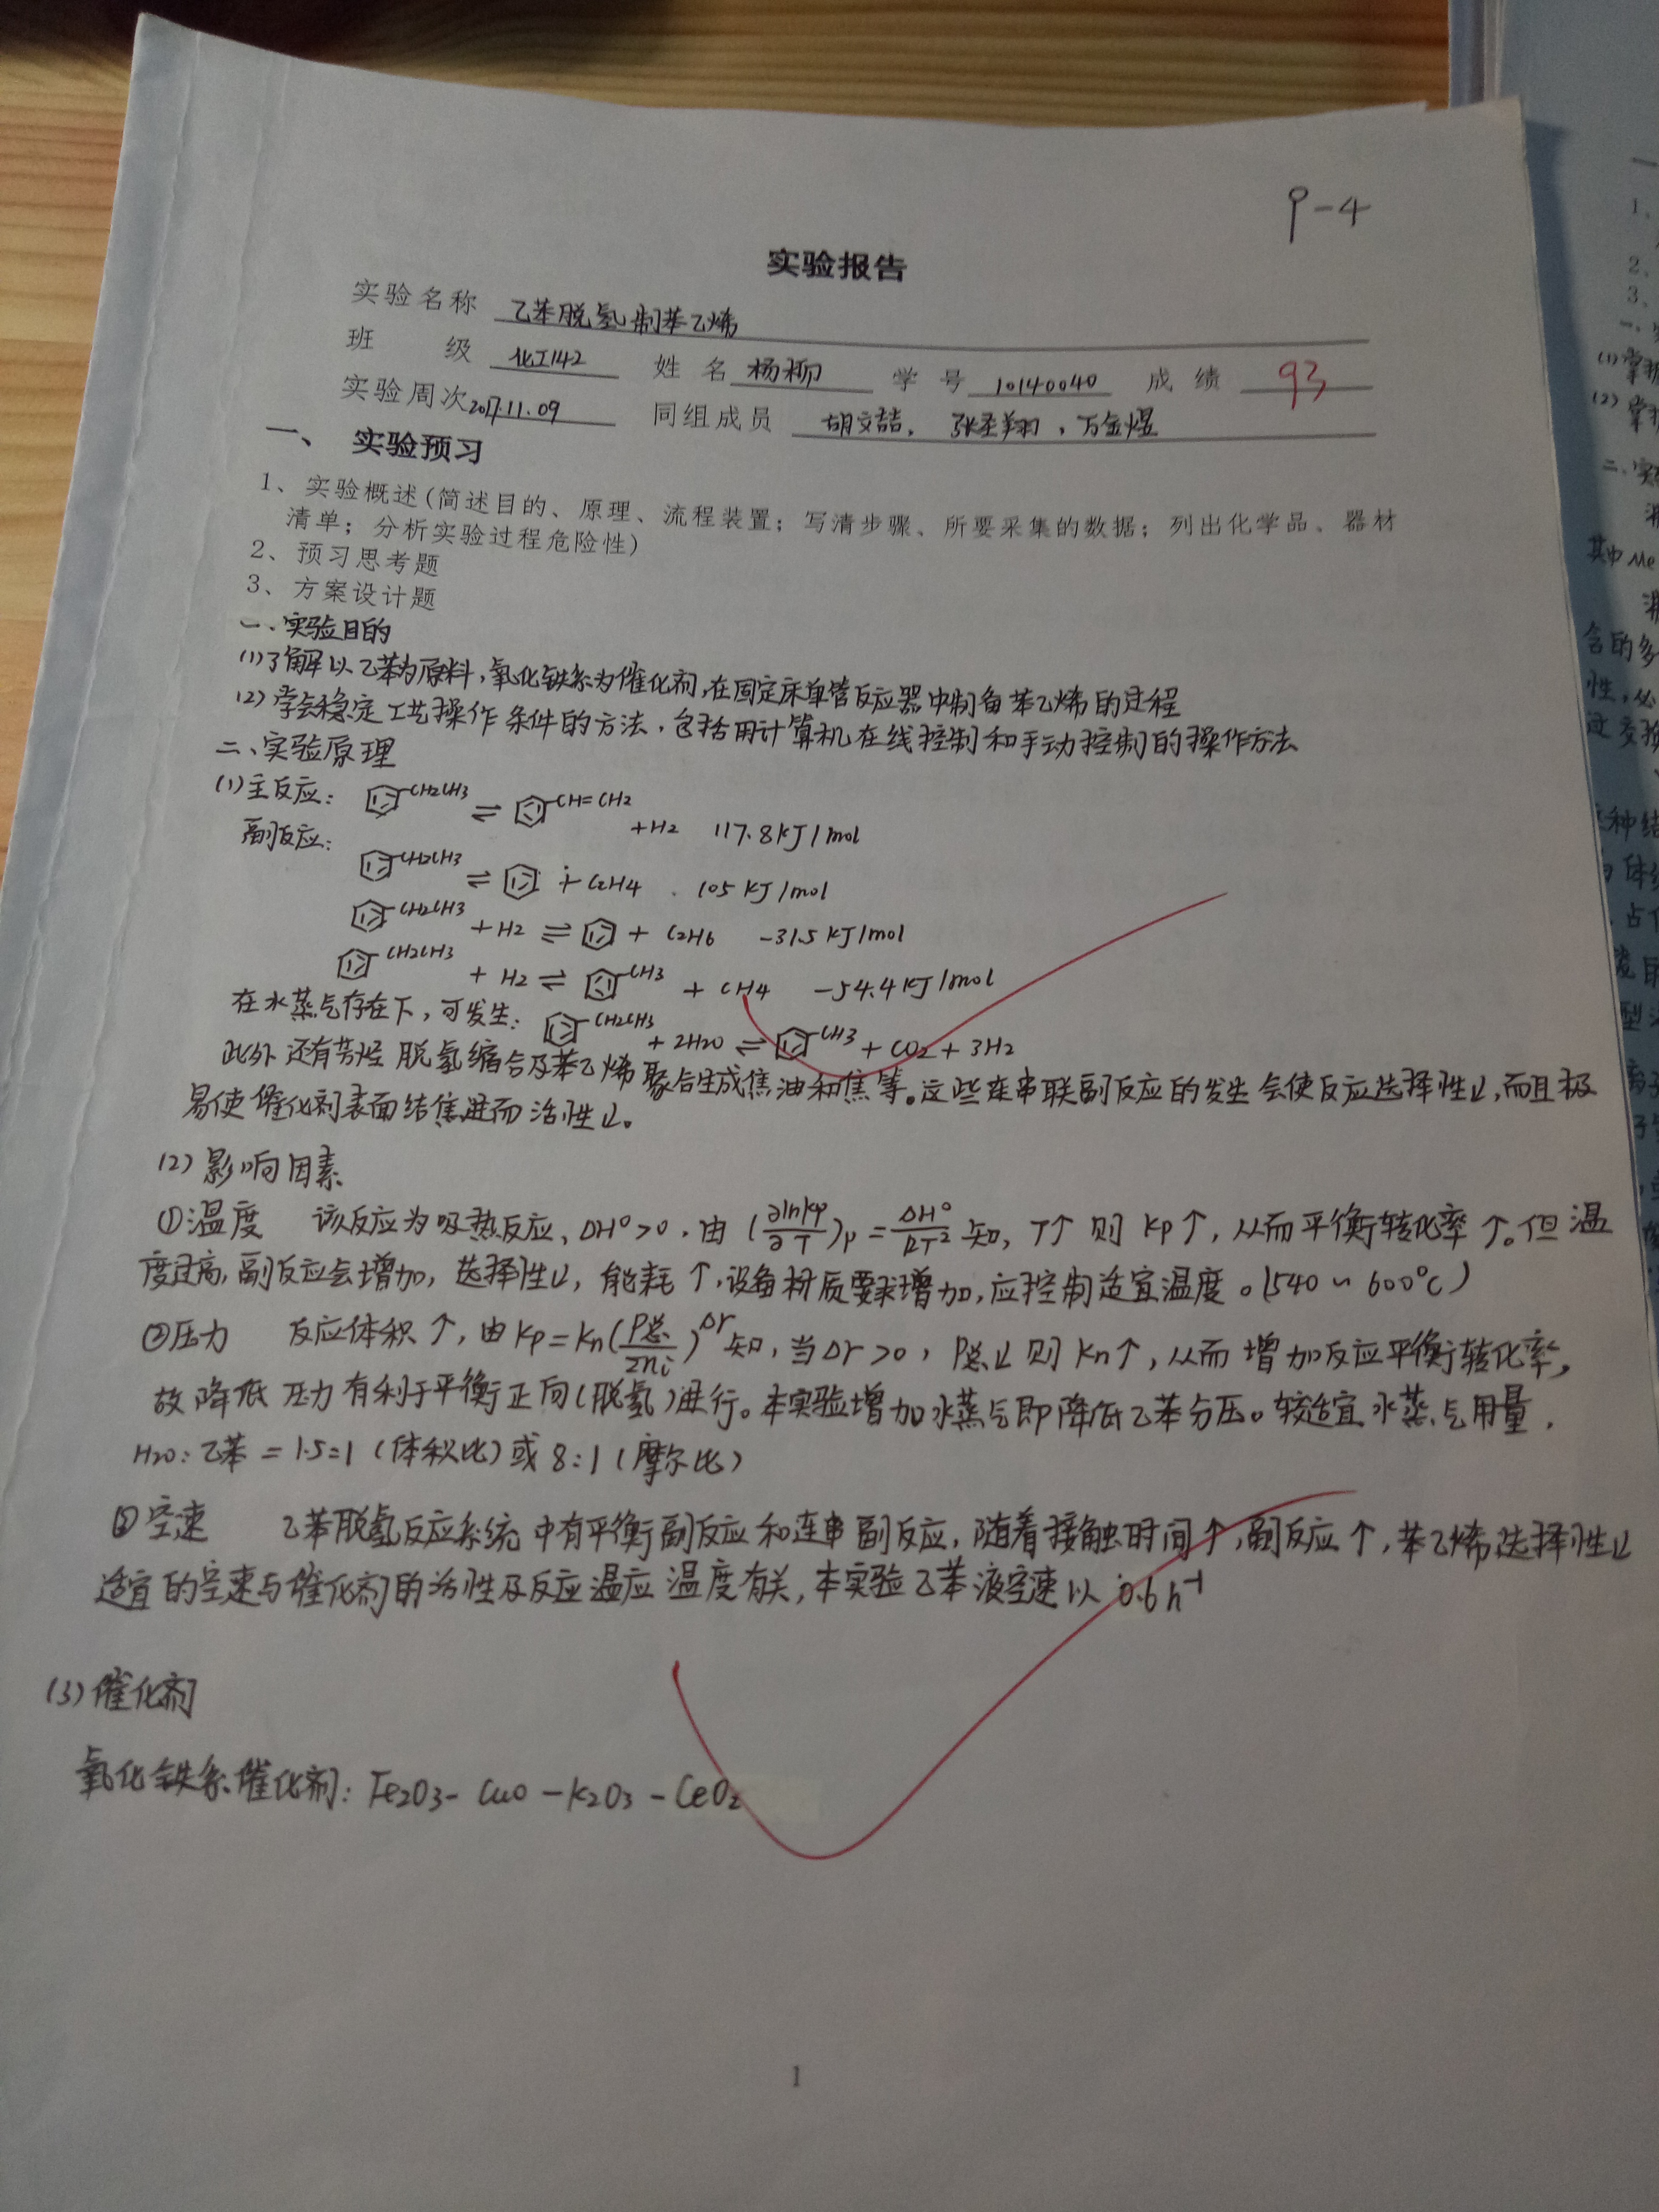 φ-4
实验报告
实验名称 乙苯脱氢制苯乙烯
班 级 化工142 姓 名 杨柳 学 号 10140040 成 绩 93
实验周次 2017.11.09 同组成员 胡文喆、张圣翔、万金煜
一、 实验预习
1、实验概述(简述目的、原理、流程装置；写清步骤、所要采集的数据；列出化学品、器材
清单；分析实验过程危险性)
2、预习思考题
3、方案设计题
一、实验目的
(1)了解以乙苯为原料,氧化铁系为催化剂,在固定床单管反应器中制备苯乙烯的过程
(2)学会稳定工艺操作条件的方法,包括用计算机在线控制和手动控制的操作方法
二、实验原理
(1)主反应: CH2CH3 ⇌ CH=CH2 +H2 117.8KJ/mol
副反应:
CH2CH3 ⇌ + C2H4 105KJ/mol
CH2CH3 +H2 ⇌ + C2H6 -31.5KJ/mol
CH2CH3 + H2 ⇌ CH3 + CH4 -54.4KJ/mol
在水蒸气存在下,可发生: CH2CH3 + 2H2O ⇌ CH3 + CO2 + 3H2
此外还有芳烃脱氢缩合及苯乙烯聚合生成焦油和焦等。这些连串联副反应的发生会使反应选择性↓,而且极
易使催化剂表面结焦进而活性↓。
(2)影响因素
①温度 该反应为吸热反应、ΔH°>0,由(∂lnKp/∂T)p=ΔH°/RT²知,T↑则Kp↑,从而平衡转化率↑。但温
度过高,副反应会增加,选择性↓,能耗↑,设备材质要求增加,应控制适宜温度。(540~600℃)
②压力 反应体积↑,由Kp=Kn(P总/Σni)^Δr知,当Δr>0,P总↓则Kn↑,从而增加反应平衡转化率,
故降低压力有利于平衡正向(脱氢)进行。本实验增加水蒸气即降低乙苯分压。较适宜水蒸气用量,
H2O:乙苯=1.5:1(体积比)或8:1(摩尔比)
③空速 乙苯脱氢反应系统中有平衡副反应和连串副反应,随着接触时间↑,副反应↑,苯乙烯选择性↓
适宜的空速与催化剂的活性及反应温应温度有关,本实验乙苯液空速以0.6h⁻¹
(3)催化剂
氧化铁系催化剂:Fe2O3-CuO-K2O3-CeO2
1
1、
2、
3、
(1)掌
(2)掌
二、实
其中Me
含的多
性,必